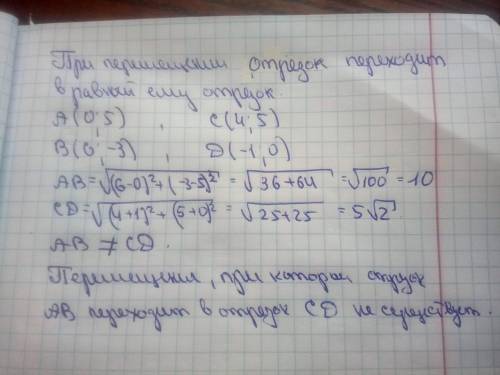 При перемещении отрезок переходит
в равный ему отрезок.
A(0;5) , C(4;5)
B(6;-3) , D(-1;0)
AB=√(6-0)²+(-3-5)² = √36+64 = √100 = 10
CD=√(4+1)²+(5+0)² = √25+25 = 5√2
AB ≠ CD.
Перемещения, при котором отрезок
AB переходит в отрезок CD не существует.